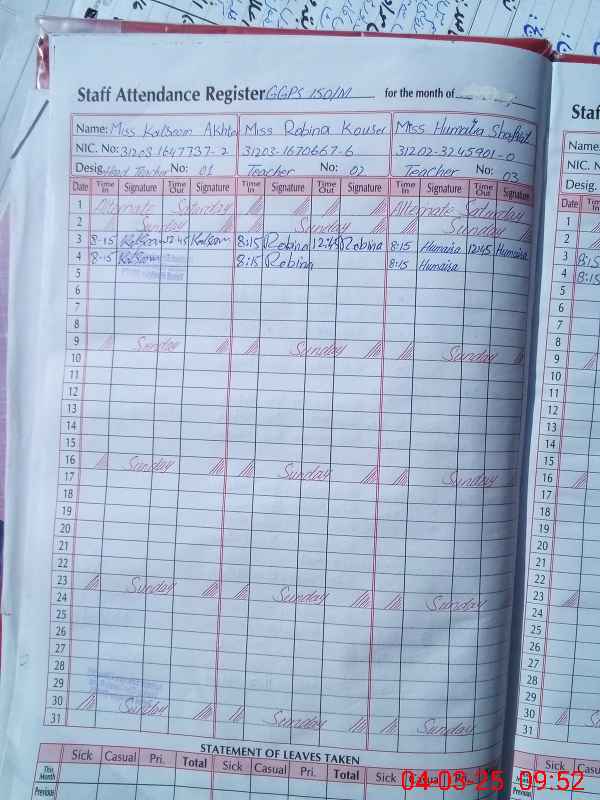 Staff Attendance Register GGPS 150/M for the month of
Name: Miss Kalsoom Akhtar Miss Robina Kouser Miss Humaira Shafqat
NIC. No: 31203 1647737-2 31203-1670667-6 31202-3245901-0
Desig. Head Teacher No: 01 Teacher No: 02 Teacher No: 03
Date Time In Signature Time Out Signature Time In Signature Time Out Signature Time In Signature Time Out Signature
1 Alternate Saturday Alternate Saturday
2 Sunday Sunday Sunday
3 8-15 Kalsoom 12:45 Kalsoom 8:15 Robina 12:45 Robina 8:15 Humaira 12:45 Humaira
4 8-15 Kalsoom 8:15 Robina 8:15 Humaira
5
6
7
8
9 Sunday Sunday Sunday
10
11
12
13
14
15
16 Sunday Sunday Sunday
17
18
19
20
21
22
23 Sunday Sunday Sunday
24
25
26
27
28
29
30 Sunday Sunday Sunday
31
STATEMENT OF LEAVES TAKEN
Sick Casual Pri. Total Sick Casual Pri. Total Sick Casual
This Month
Previous
Staff
Name:
NIC. N
Desig.
Date Time In
1
2
3 8:15
4 8:15
5
6
7
8
9
10
11
12
13
14
15
16
17
18
19
20
21
22
23
24
25
26
27
28
29
30
31
Sick
This Month
Previous
04-03-25 09:52